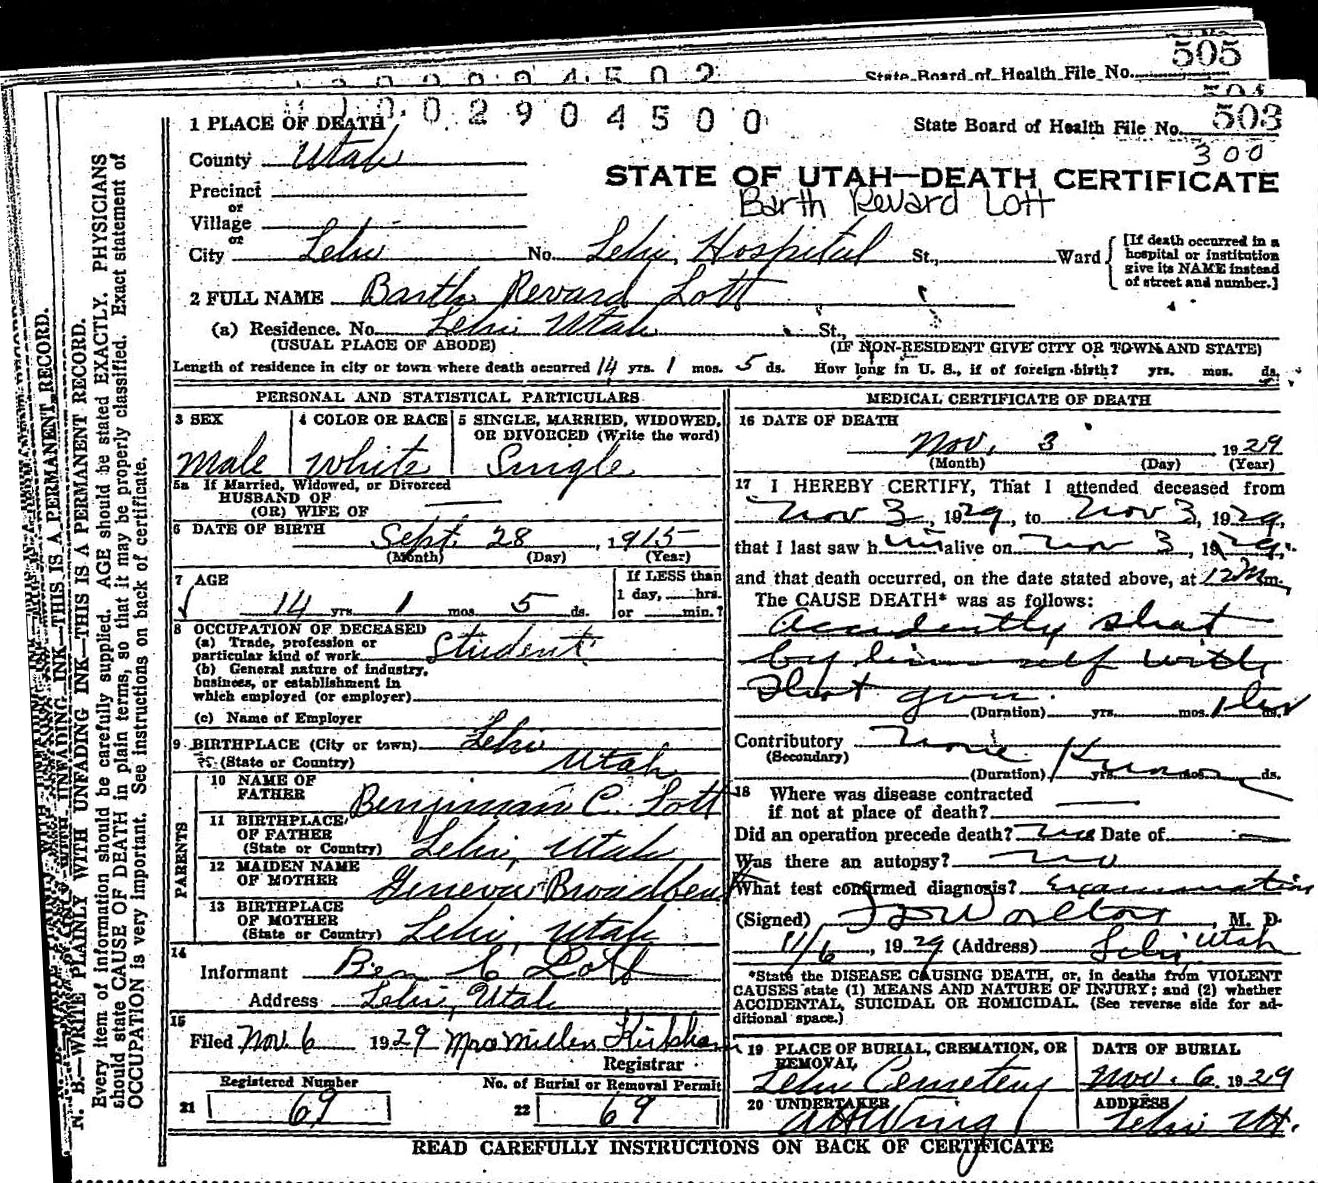 505
State Board of Health File No.
3 0 0 2 9 0 4 5 0 2
504
3 0 0 2 9 0 4 5 0 0
State Board of Health File No. 503
300
1 PLACE OF DEATH
County Utah
STATE OF UTAH—DEATH CERTIFICATE
Barth Revard Lott
Precinct
or
Village
or
City Lehi No. Lehi Hospital St., Ward
[If death occurred in a hospital or institution give its NAME instead of street and number.]
2 FULL NAME Barth Revard Lott
(a) Residence. No. Lehi Utah St.,
(USUAL PLACE OF ABODE) (IF NON-RESIDENT GIVE CITY OR TOWN AND STATE)
Length of residence in city or town where death occurred 14 yrs. 1 mos. 5 ds. How long in U. S., if of foreign birth? yrs. mos. ds.
PERSONAL AND STATISTICAL PARTICULARS
3 SEX 4 COLOR OR RACE 5 SINGLE, MARRIED, WIDOWED, OR DIVORCED (Write the word)
Male White Single
5a If Married, Widowed, or Divorced
HUSBAND OF
(OR) WIFE OF
6 DATE OF BIRTH Sept. 28, 1915
(Month) (Day) (Year)
7 AGE If LESS than
1 day, hrs.
14 yrs 1 mos. 5 ds. or min.?
8 OCCUPATION OF DECEASED
(a) Trade, profession or
particular kind of work Student
(b) General nature of industry,
business, or establishment in
which employed (or employer)
(c) Name of Employer
9 BIRTHPLACE (City or town) Lehi
(State or Country) Utah
PARENTS
10 NAME OF
FATHER Benjamin C. Lott
11 BIRTHPLACE
OF FATHER
(State or Country) Lehi, Utah
12 MAIDEN NAME
OF MOTHER Geneva Broadbent
13 BIRTHPLACE
OF MOTHER
(State or Country) Lehi, Utah
14
Informant Ben C Lott
Address Lehi, Utah
15
Filed Nov. 6 1929 Mrs Millen Kirkham
Registrar
Registered Number No. of Burial or Removal Permit
21 69 22 69
MEDICAL CERTIFICATE OF DEATH
16 DATE OF DEATH
Nov. 3 1929
(Month) (Day) (Year)
17 I HEREBY CERTIFY, That I attended deceased from
Nov 3, 1929, to Nov 3, 1929,
that I last saw him alive on Nov 3, 1929,
and that death occurred, on the date stated above, at 12 M m.
The CAUSE DEATH* was as follows:
Accidently shot
by him self with
Shot gun.
(Duration) yrs. mos. 1 hr ds.
Contributory None
(Secondary)
(Duration) yrs. mos. ds.
18 Where was disease contracted
if not at place of death?
Did an operation precede death? no Date of
Was there an autopsy? no
What test confirmed diagnosis? Examination
(Signed) Worlton, M. D.
11/6, 1929 (Address) Lehi Utah
*State the DISEASE CAUSING DEATH, or, in deaths from VIOLENT
CAUSES state (1) MEANS AND NATURE OF INJURY; and (2) whether
ACCIDENTAL, SUICIDAL OR HOMICIDAL. (See reverse side for ad-
ditional space.)
19 PLACE OF BURIAL, CREMATION, OR REMOVAL DATE OF BURIAL
Lehi Cemetery Nov. 6 1929
20 UNDERTAKER ADDRESS
A H Wing Lehi Ut.
READ CAREFULLY INSTRUCTIONS ON BACK OF CERTIFICATE
N. B.—WRITE PLAINLY WITH UNFADING INK—THIS IS A PERMANENT RECORD.
Every item of information should be carefully supplied. AGE should be stated EXACTLY. PHYSICIANS
should state CAUSE OF DEATH in plain terms, so that it may be properly classified. Exact statement of
OCCUPATION is very important. See instructions on back of certificate.